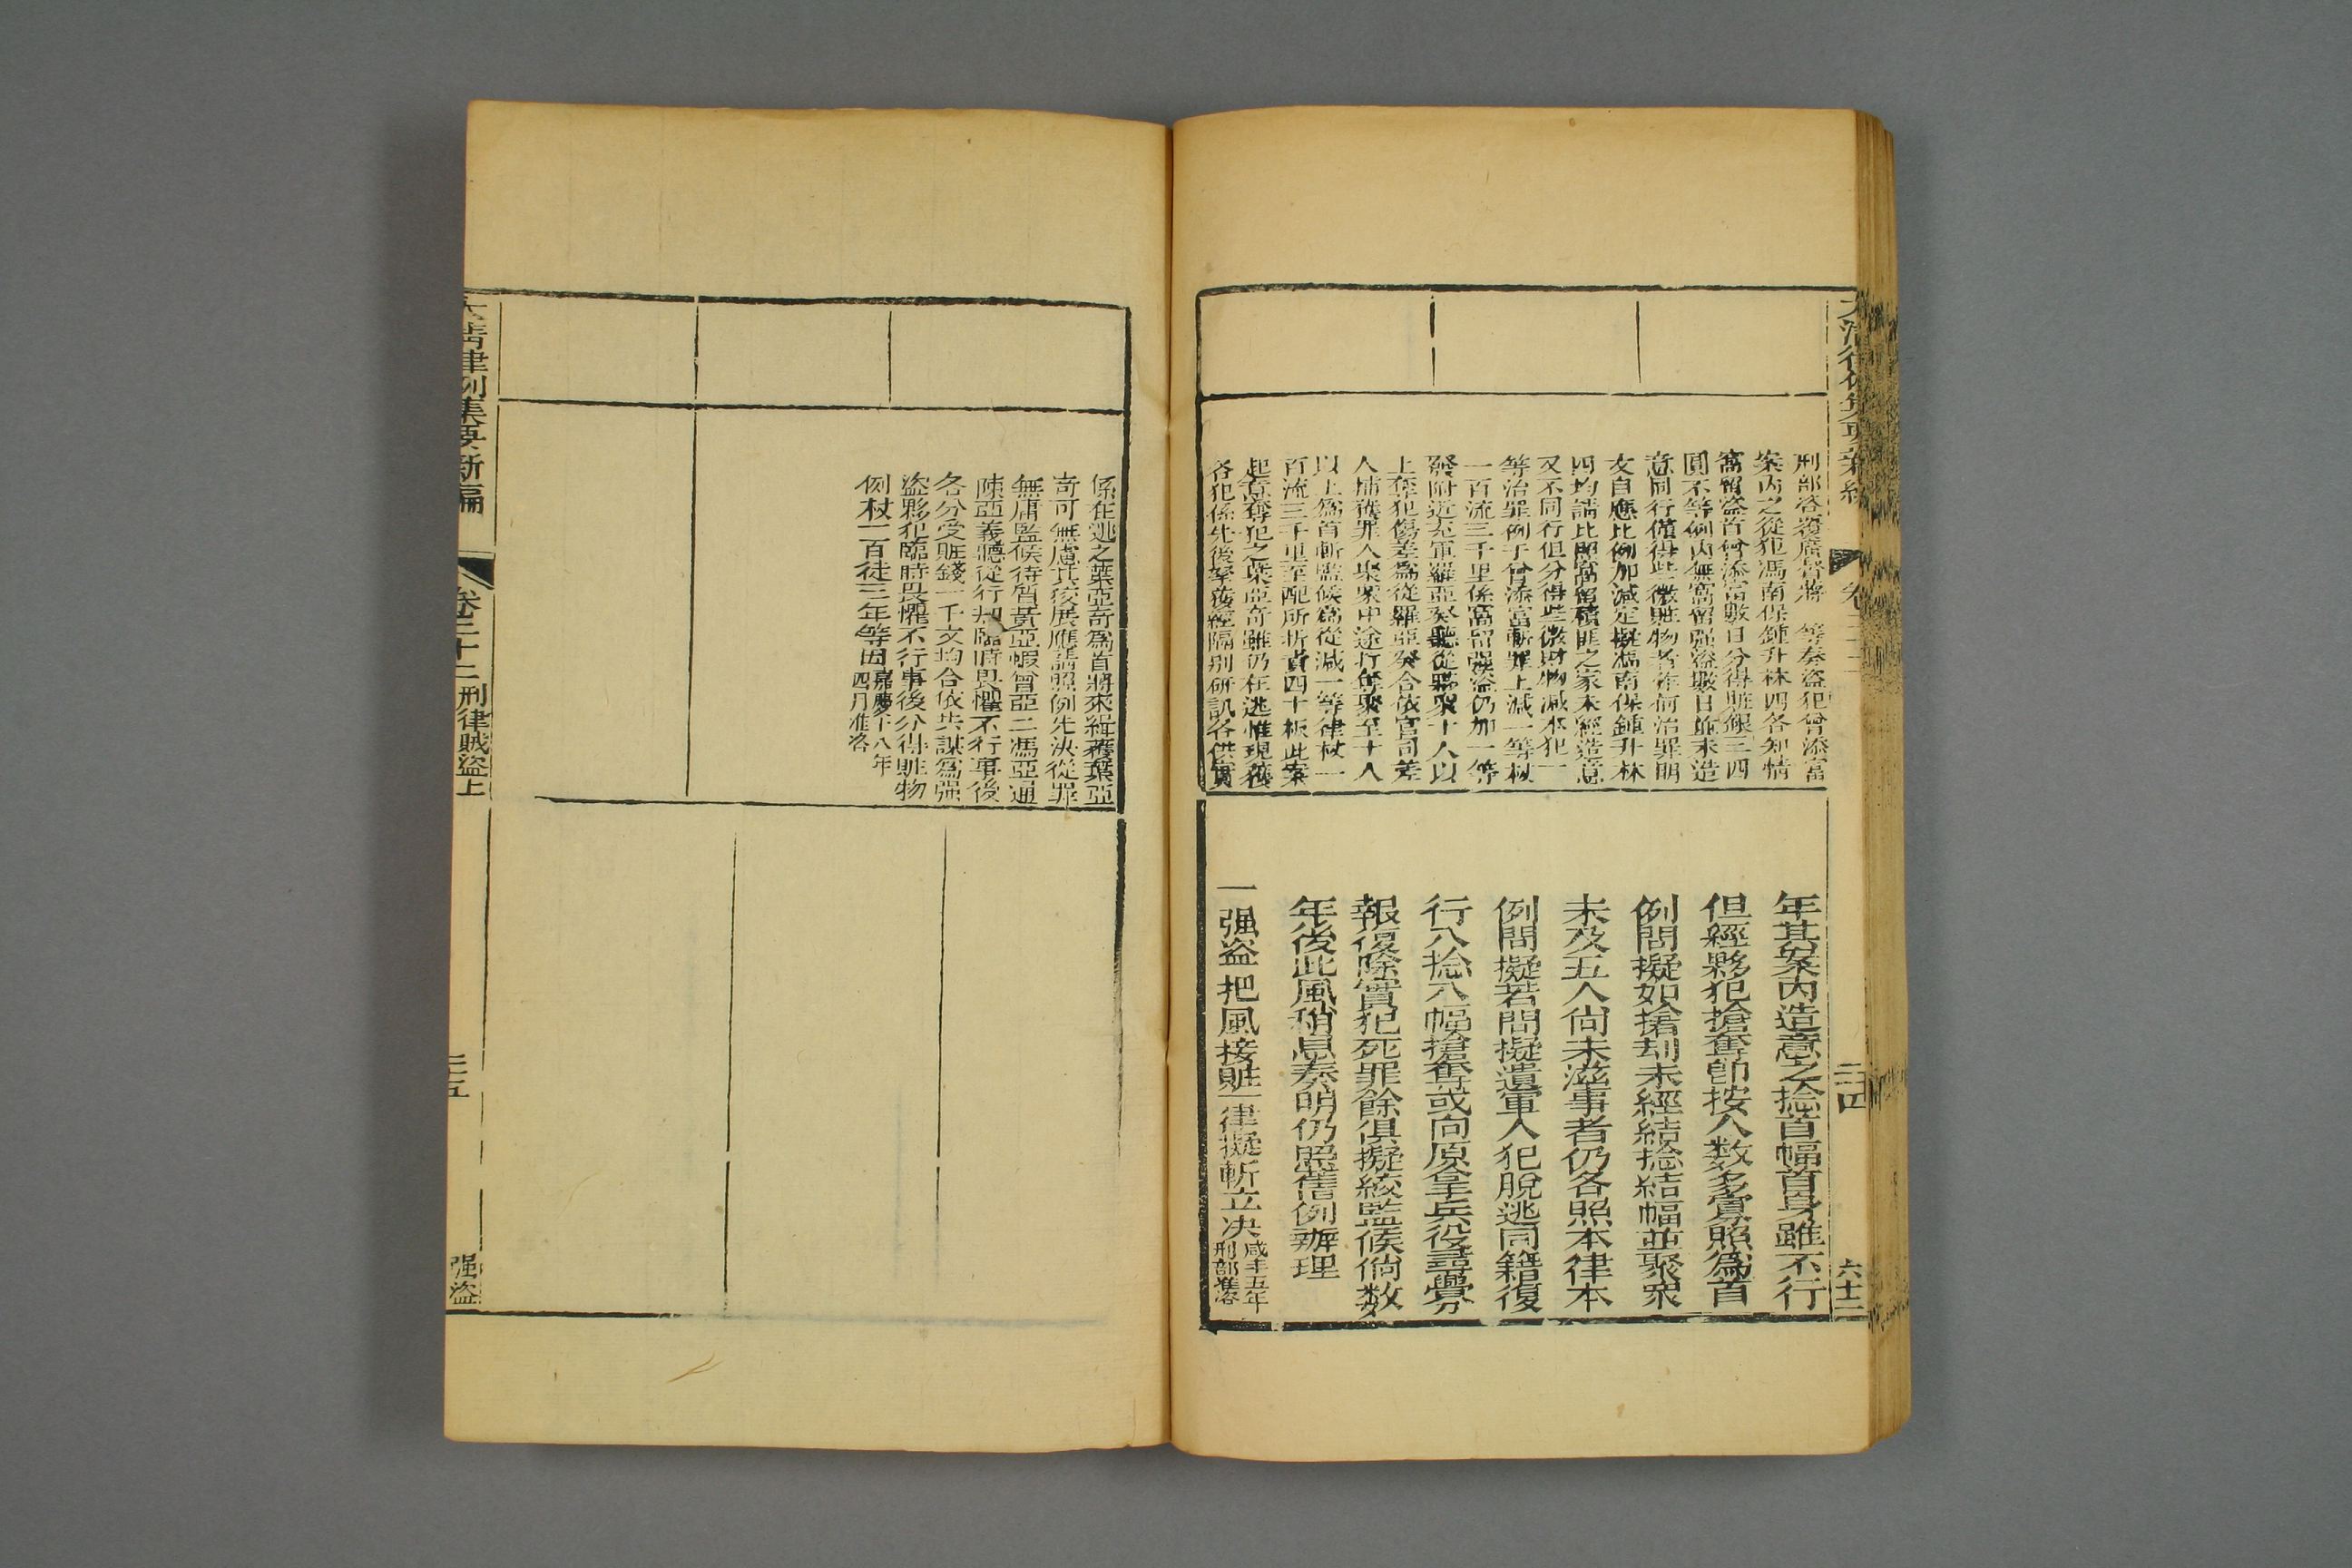 刑部咨覆廣督蔣　等奏盜犯曾添富
案內之從犯馮南保鍾升林四各知情
窩留盜首曾添富數日分得賍銀三四
圓不等例內無窩留强盜數日並未造
意同行僅得些微賍物者作何治罪明
文自應比例加減定擬馮南保鍾升林
四均請比照窩留積匪之家未經造意
又不同行但分得些微財物減本犯一
等治罪例于曾添富斬罪上減一等杖
一百流三千里係窩留强盜仍加一等
發附近充軍羅亞癸聽從夥眾十人以
上奪犯傷差為從羅亞癸合依官司差
人捕獲罪人聚眾中途打奪聚至十人
以上為首斬監候為從減一等律杖一
百流三千里至配所折責四十板此案
起意奪犯之葉亞奇雖仍在逃惟現獲
各犯係先後拏獲經隔别研訊各供實
年其案內造意之捻首幅首身雖不行
但經夥犯搶奪卽按人數多寡照為首
例問擬如搶刧未經結捻結幅並聚眾
未及五人尙未滋事者仍各照本律本
例問擬若問擬遣軍人犯脫逃同籍復
行入捻入幅搶奪或向原拿兵役尋釁
報復除實犯死罪餘俱擬絞監候倘数
年後此風稍息奏明仍照舊例辦理
一强盜把風接賍一律擬斬立决咸丰五年刑部准咨
二十四
六十二
係在逃之葉亞奇為首將來緝獲葉亞
奇可無慮其狡展應請照例先決從罪
無庸監候待質黃亞蝦曾亞二馮亞通
陳亞義聽從行刧臨時畏懼不行事後
各分受賍錢一千文均合依共謀為强
盜夥犯臨時畏懼不行事後分得賍物
例杖一百徒三年等因嘉慶十八年四月准咨
大清律例集要新編
卷二十二刑律賊盜上
二十五
强盜